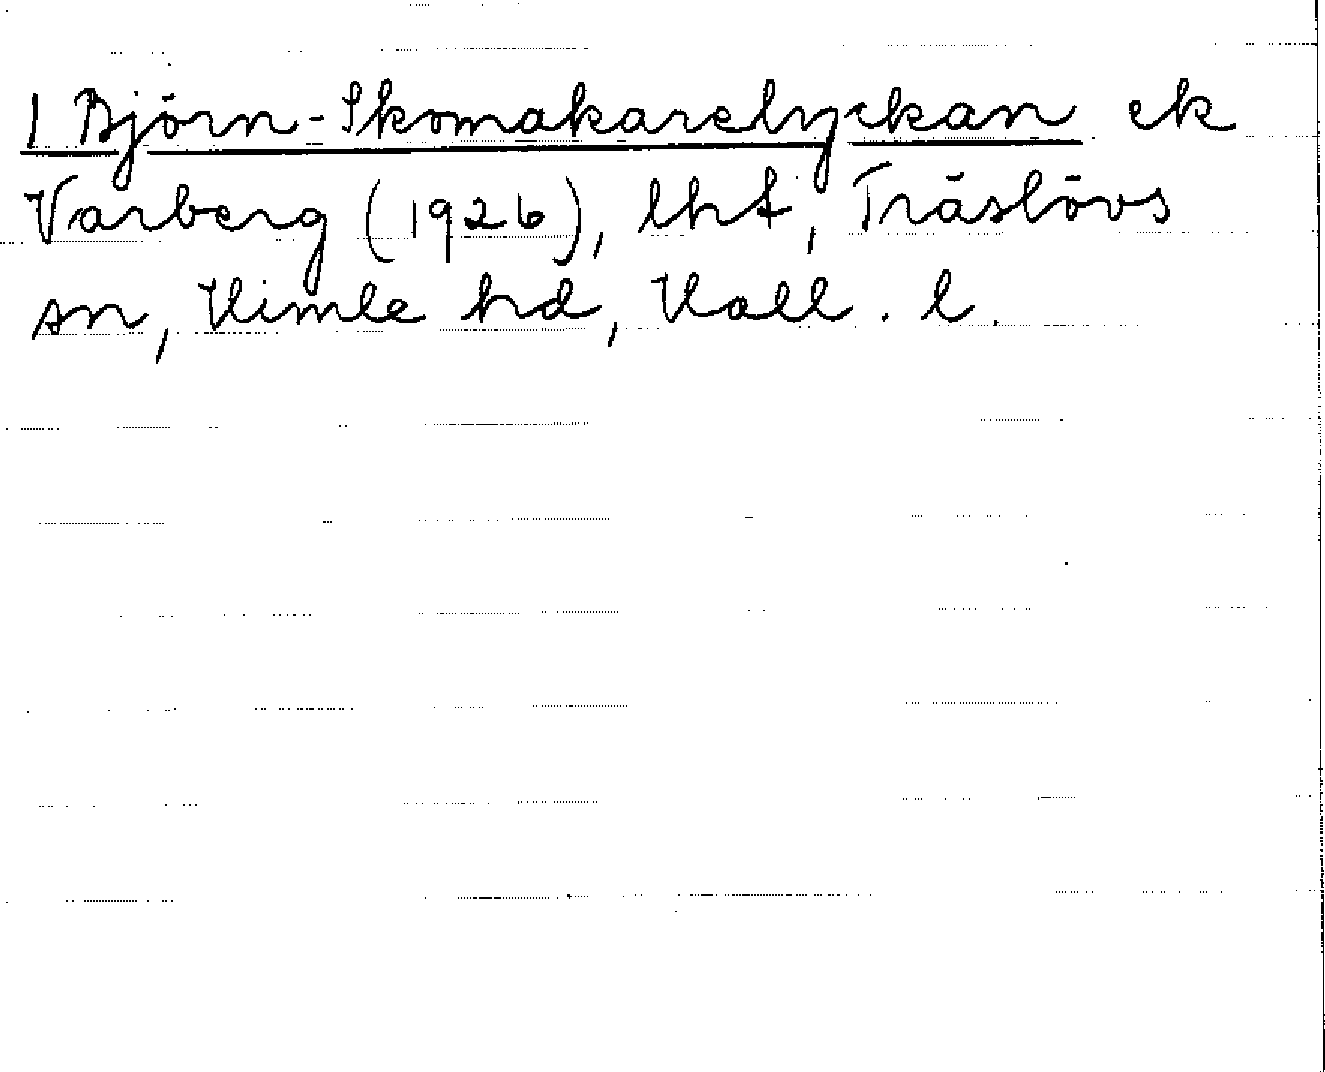 1 Björn-Skomakarelyckan ek
Varberg (1926), lht, Träslövs
sn, Himle hd, Hall. l.